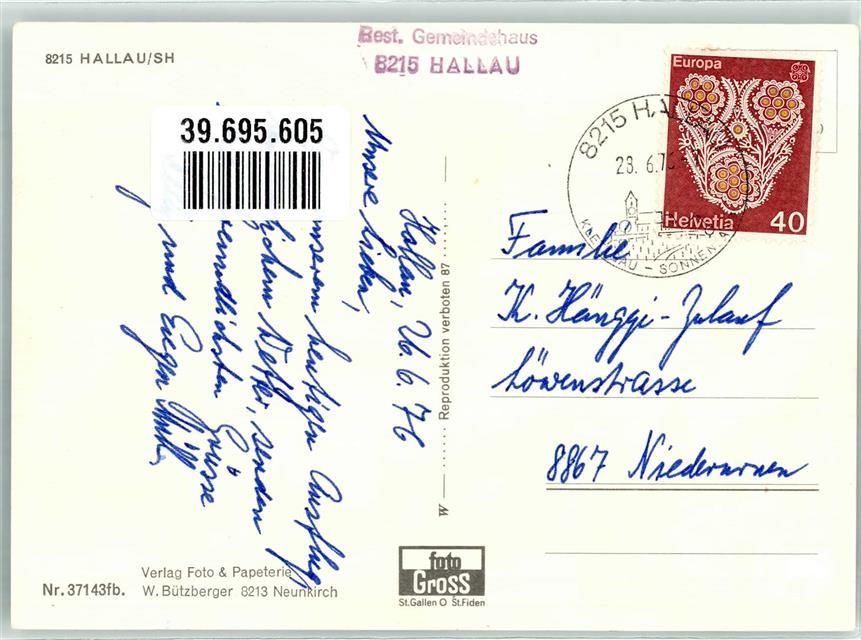 8215 HALLAU/SH
Best. Gemeindehaus
8215 HALLAU
39.695.605
Europa
Helvetia 40
8215 HALLAU
28. 6. 76
SONNEN
Hallau, 26. 6. 76
Unsere Lieben,
unserem heutigen Ausflug
Wetter, senden
freundlichsten Grüsse
und Eugen
Familie
K. Hänggi-Zulauf
Löwenstrasse
8867 Niederurnen
W Reproduktion verboten 87
Nr. 37143fb.
Verlag Foto & Papeterie
W. Bützberger 8213 Neunkirch
foto
GROSS
St.Gallen O St.Fiden